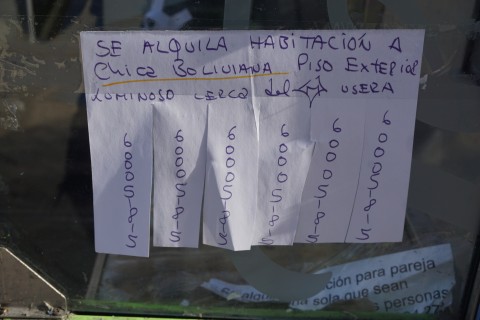 SE ALQUILA HABITACIÓN A
Chica BOLIVIANA Piso Exterior
LUMINOSO CERCA del USERA
600051815
600051815
600051815
600051815
600051815
600051815
ción para pareja
sola que sean
personas